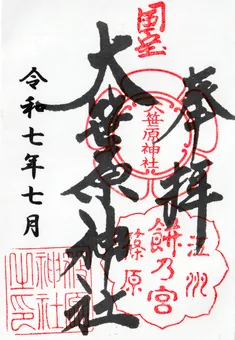 奉拝
国宝
大笹原神社
大笹原神社
江州
餅乃宮
篠原
令和七年七月